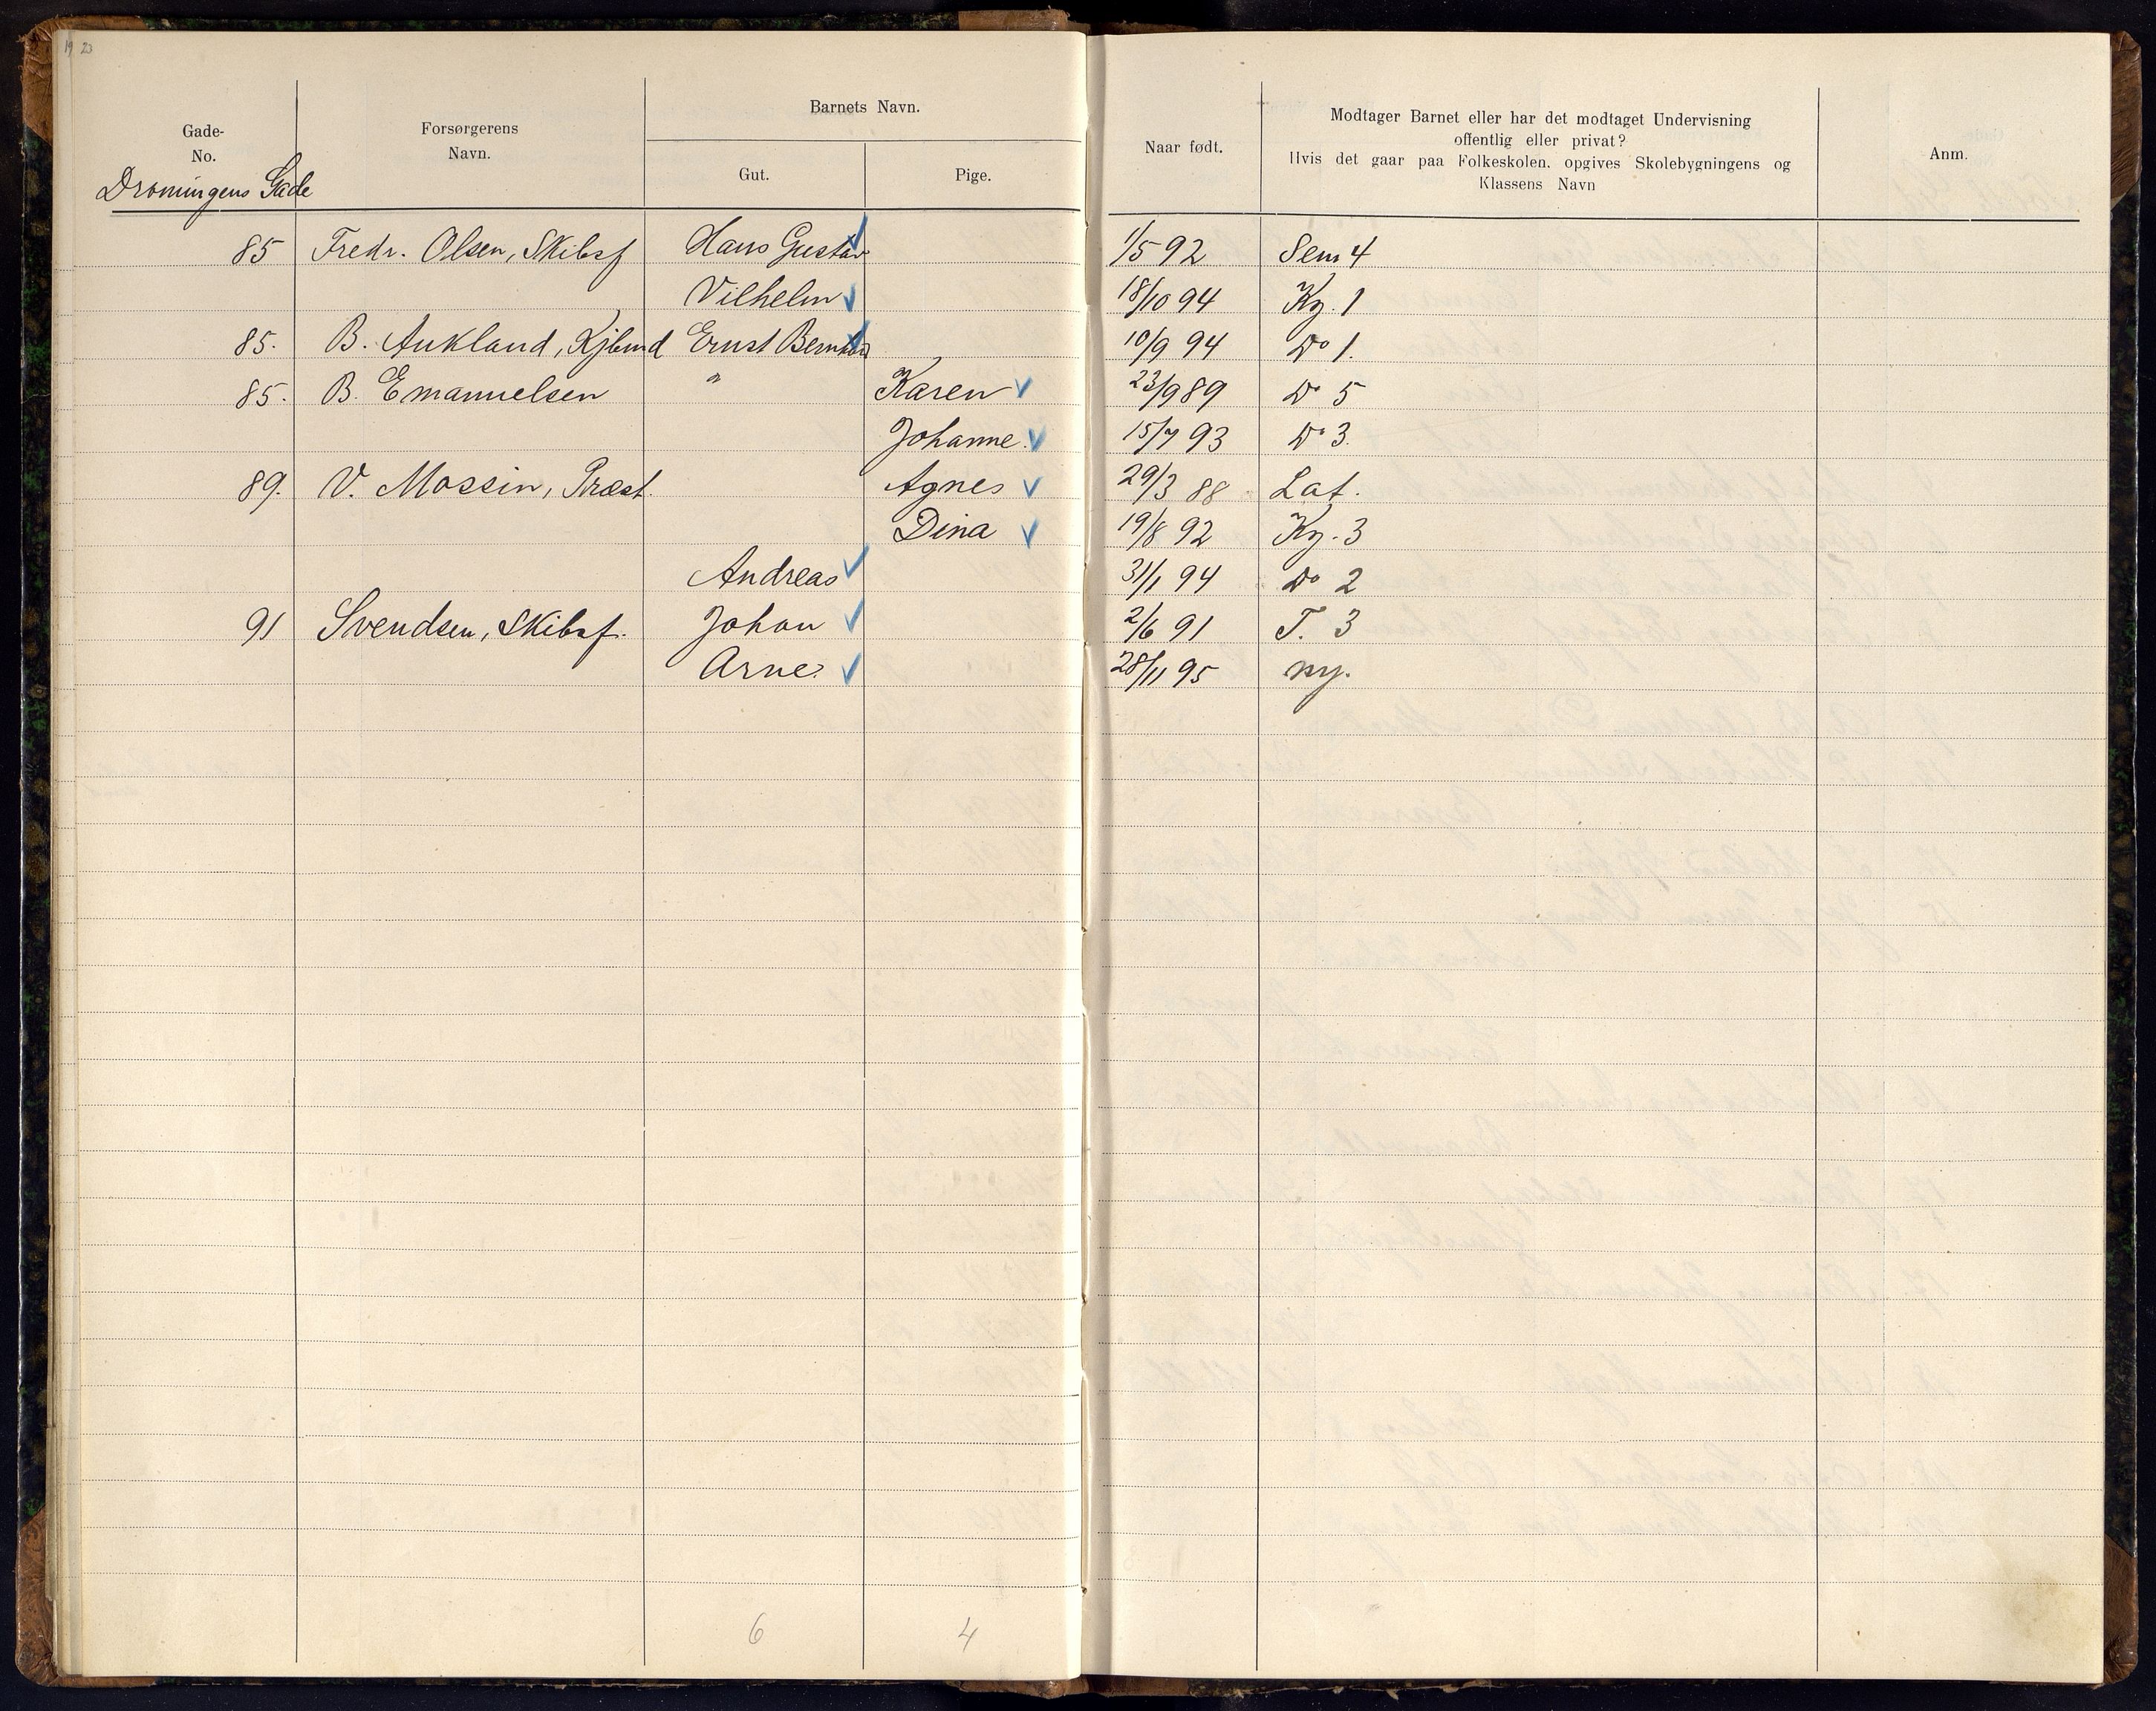 19 23
Gade-
No.
Forsørgerens
Navn.
Barnets Navn.
Gut.
Pige.
Naar født.
Modtager Barnet eller har det modtaget Undervisning
offentlig eller privat?
Hvis det gaar paa Folkeskolen, opgives Skolebygningens og
Klassens Navn
Anm.
Dronningens Gade
85 Fredr. Olsen, Skibsf Hans Gustav 1/5 92 Sem 4
Vilhelm 18/10 94 Kg. 1
85. B. Aukland, Kjbmd Ernst Bernhard 10/9 94 Do 1.
85. B. Emanuelsen " Karen 23/9 89 Do 5
Johanne. 15/7 93 Do 3.
89. V. Mossin, Præst. Agnes 29/3 88 Lat.
Dina 19/8 92 Kg. 3
Andreas 31/1 94 Do 2
91 Svendsen, Skibsf. Johan 2/6 91 T. 3
Arne. 28/11 95 ny.
6 4